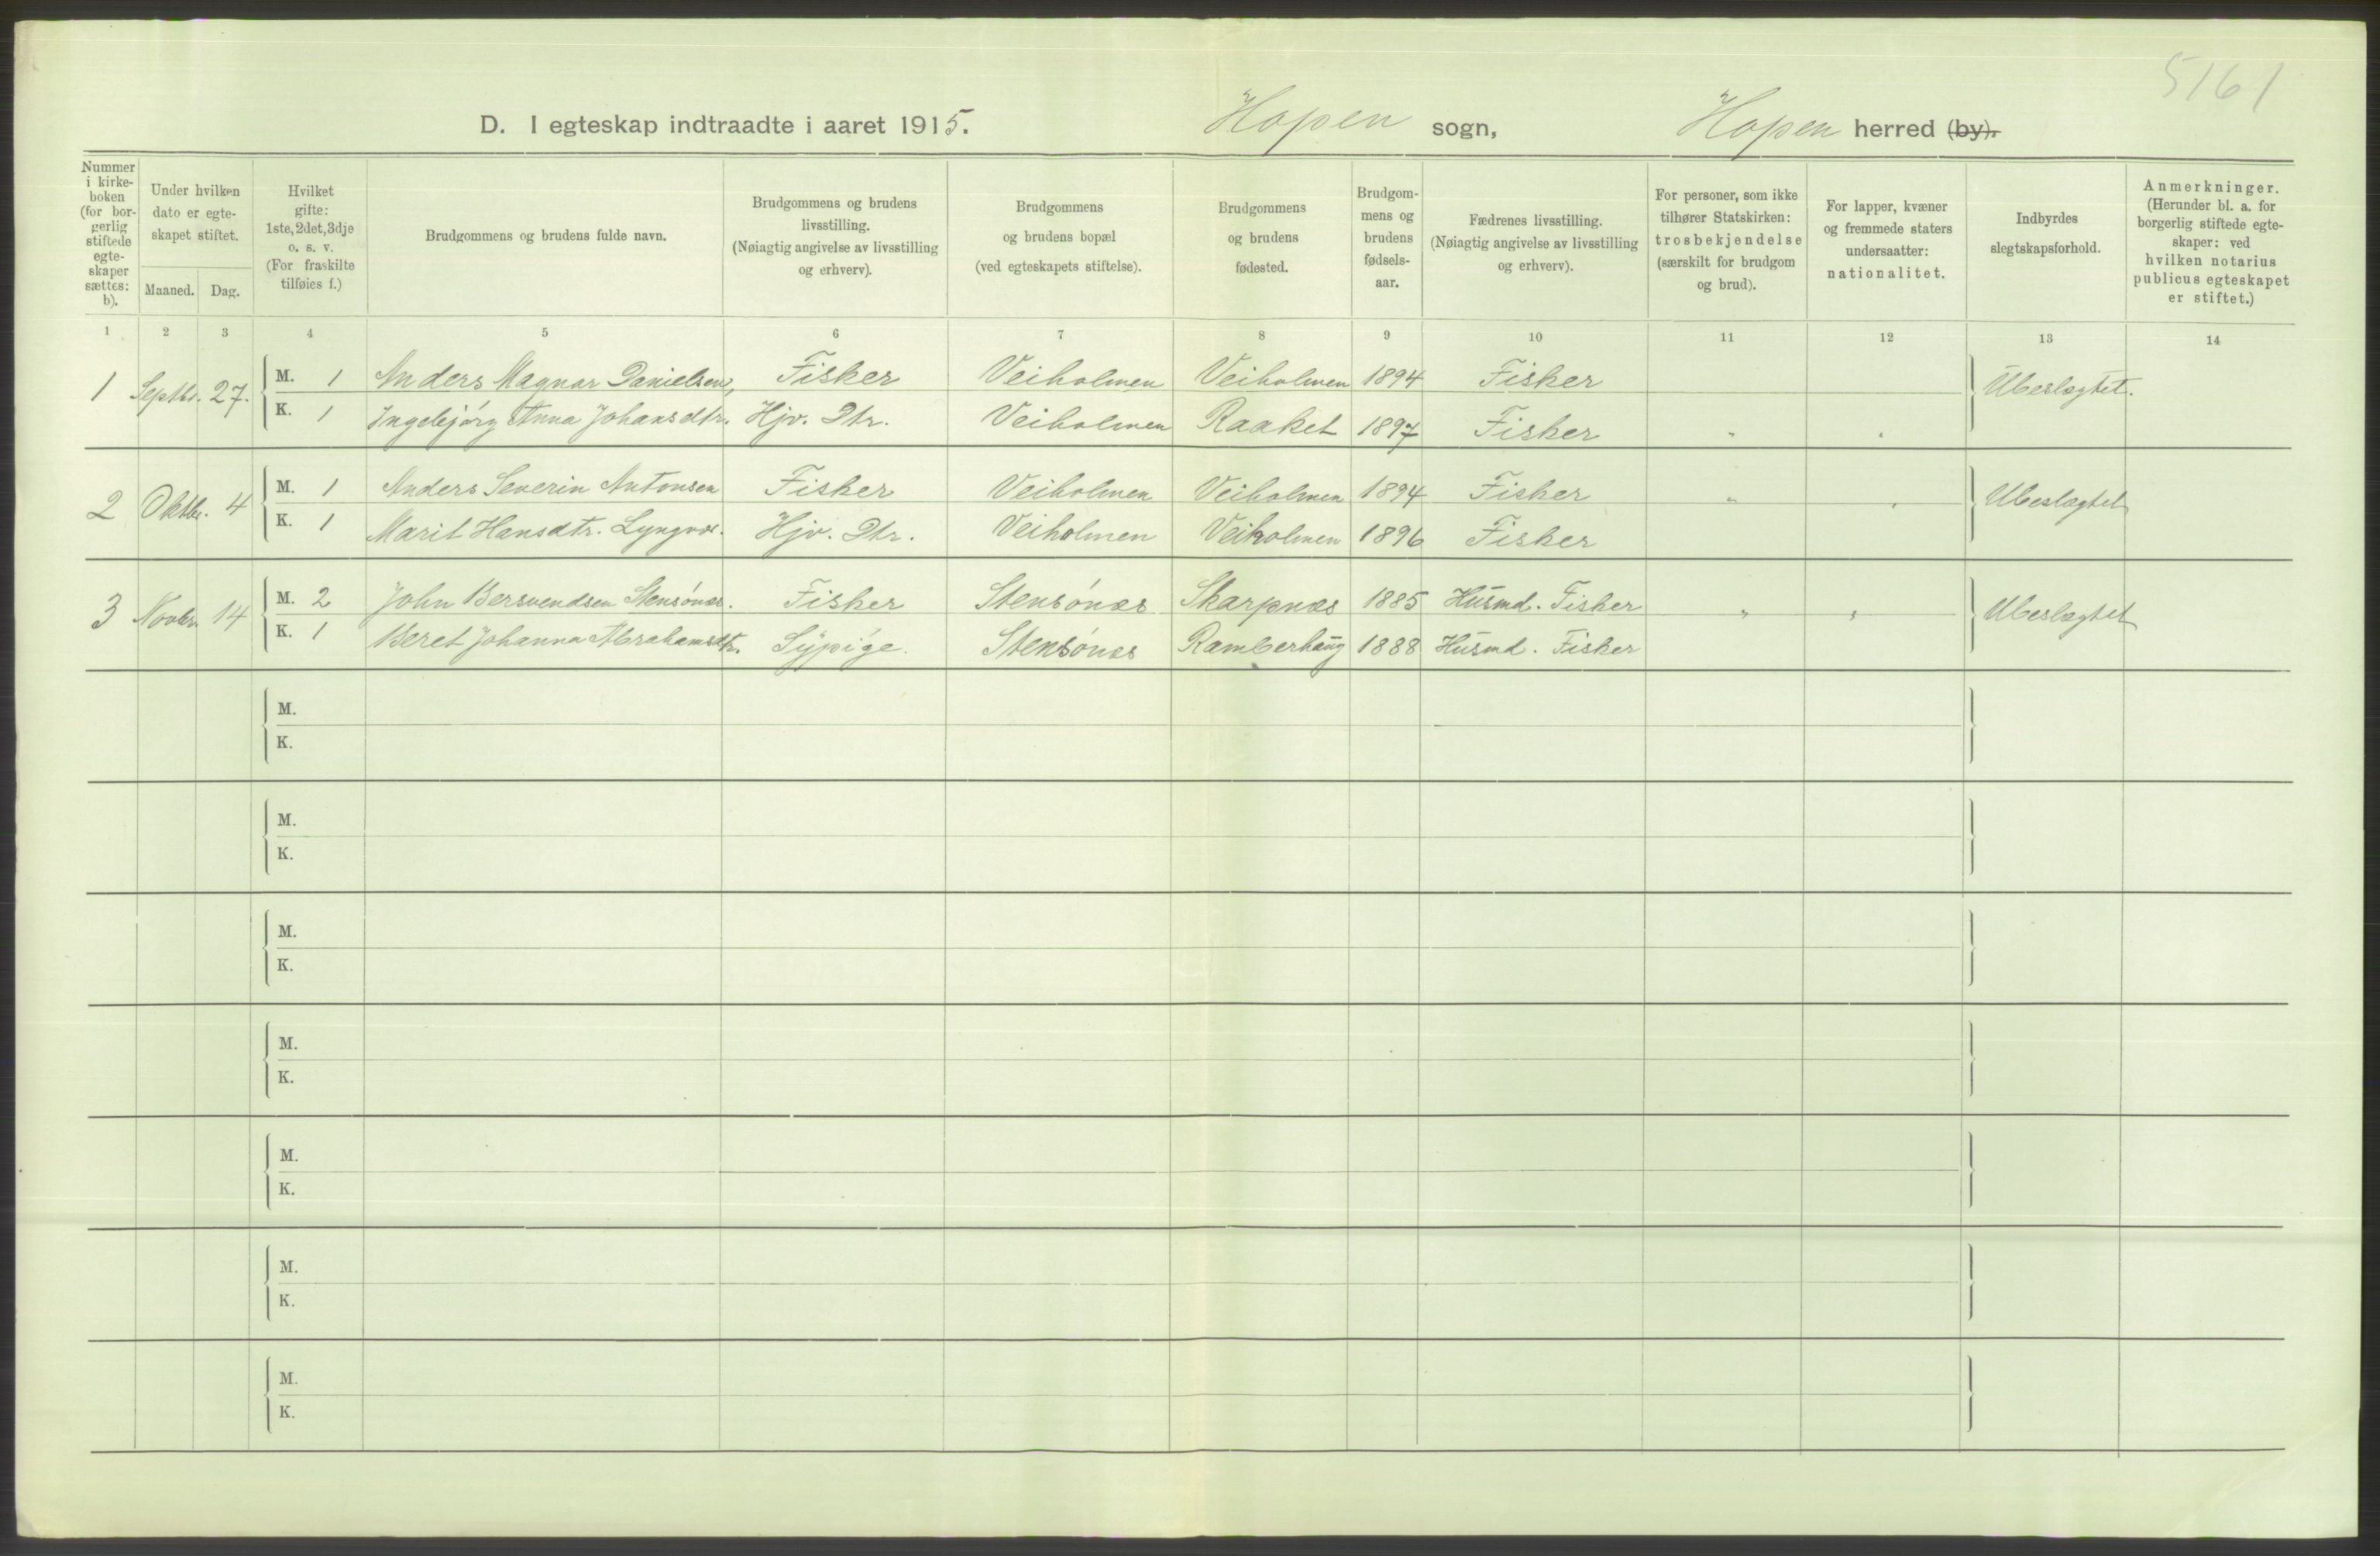 5161
D. I egteskap indtraadte i aaret 1915. Hopen sogn, Hopen herred (by).
Nummer i kirkeboken (for borgerlig stiftede egteskaper sættes: b).
Under hvilken dato er egteskapet stiftet.
Maaned. Dag.
Hvilket gifte: 1ste, 2det, 3dje o. s. v. (For fraskilte tilføies f.)
Brudgommens og brudens fulde navn.
Brudgommens og brudens livsstilling. (Nøiagtig angivelse av livsstilling og erhverv).
Brudgommens og brudens bopæl (ved egteskapets stiftelse).
Brudgommens og brudens fødested.
Brudgommens og brudens fødselsaar.
Fædrenes livsstilling. (Nøiagtig angivelse av livsstilling og erhverv).
For personer, som ikke tilhører Statskirken: trosbekjendelse (særskilt for brudgom og brud).
For lapper, kvæner og fremmede staters undersaatter: nationalitet.
Indbyrdes slegtskapsforhold.
Anmerkninger. (Herunder bl. a. for borgerlig stiftede egteskaper: ved hvilken notarius publicus egteskapet er stiftet.)
1 2 3 4 5 6 7 8 9 10 11 12 13 14
1 Septbr. 27. M. 1 Anders Magnar Danielsen, Fisker Veiholmen Veiholmen 1894 Fisker Ubeslegtet.
K. 1 Ingebjørg Anna Johansdtr. Hjv. Dtr. Veiholmen Raaket 1897 Fisker " "
2 Oktbr. 4 M. 1 Anders Severin Antonsen Fisker Veiholmen Veiholmen 1894 Fisker " " Ubeslægtet
K. 1 Marit Hansdtr. Lyngvær. Hjv. Dtr. Veiholmen Veiholmen 1896 Fisker
3 Novbr. 14 M. 2 John Bersvendsen Stensønæs. Fisker Stensønæs Skarpnæs 1885 Husmd. Fisker " " Ubeslægtet
K. 1 Beret Johanna Abrahamsdtr. Sypige. Stensønæs Ramberhaug 1888 Husmd. Fisker
M.
K.
M.
K.
M.
K.
M.
K.
M.
K.
M.
K.
M.
K.